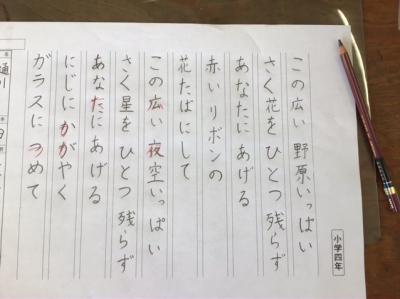 小学四年
この広い 野原いっぱい
さく花を ひとつ 残らず
あなたに あげる
赤い リボンの
花たばにして
この広い 夜空いっぱい
さく星を ひとつ 残らず
あなたに あげる
にじに かがやく
ガラスに つめて